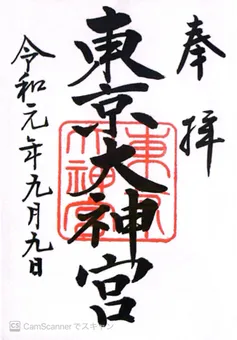 奉拝
東京大神宮
令和元年九月九日
東京
大神宮
CS CamScannerでスキャン